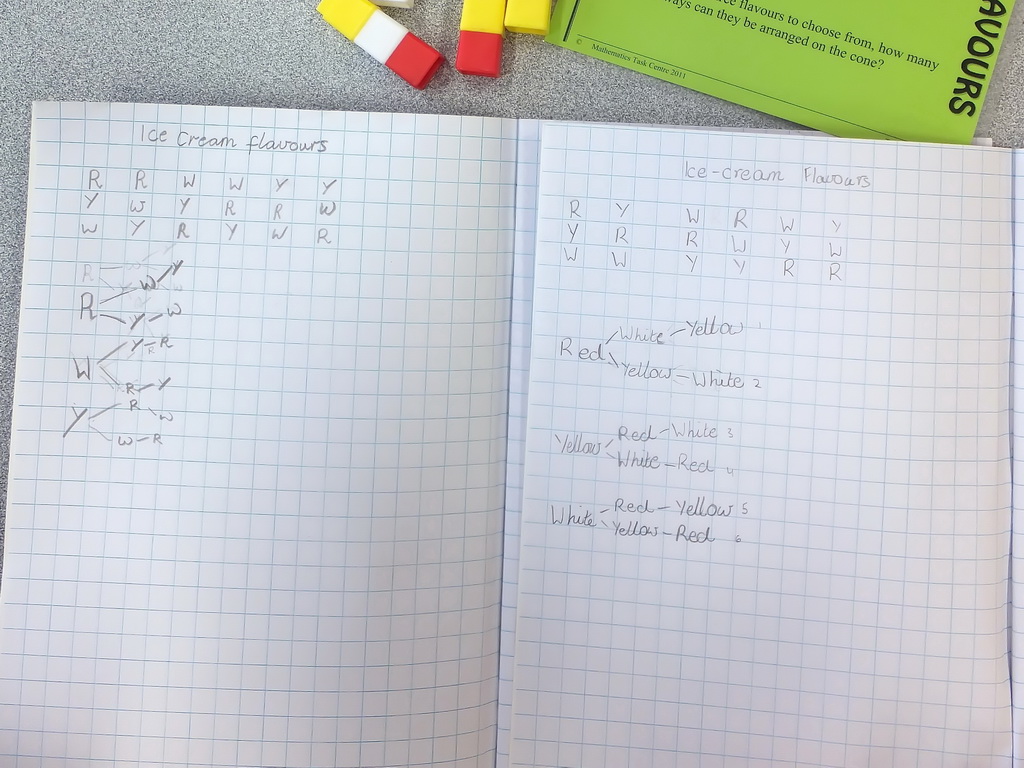 ce flavours to choose from, how many
ways can they be arranged on the cone?
© Mathematics Task Centre 2011
AVOURS
Ice Cream flavours
R R W W Y Y
Y W Y R R W
W Y R Y W R
R
R W Y
Y W
W Y R
R
R Y
Y R W
W R
Ice-cream Flavours
R Y W R W Y
Y R R W Y W
W W Y Y R R
Red White Yellow 1
Yellow White 2
Yellow Red White 3
White Red 4
White Red Yellow 5
Yellow Red 6